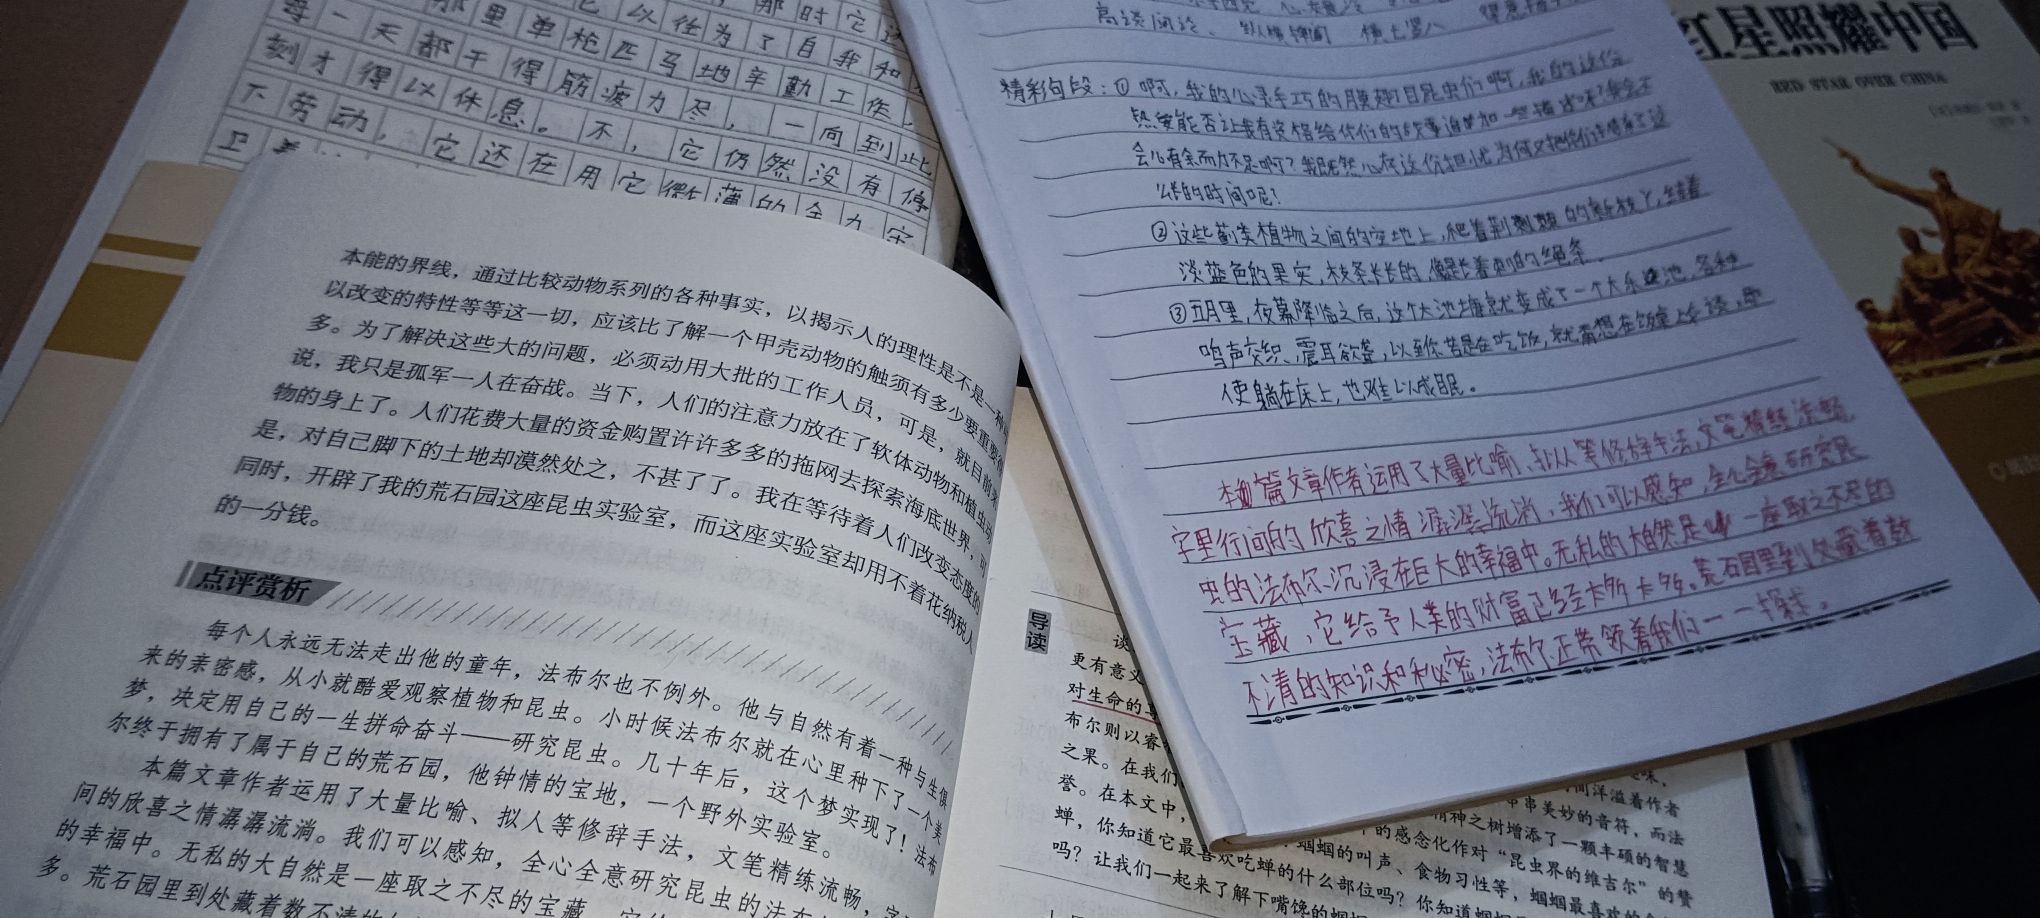 那时它
那里单枪匹马地辛勤工作，
它以往为了自我和
每一天都干得筋疲力尽，一向到此
刻才得以休息。不，它仍然没有停
下劳动，它还在用它微薄的全力守
卫着
本能的界线，通过比较动物系列的各种事实，以揭示人的理性是不是一种
以改变的特性等等这一切，应该比了解一个甲壳动物的触须有多少要重要得
多。为了解决这些大的问题，必须动用大批的工作人员，可是，就目前来
说，我只是孤军一人在奋战。当下，人们的注意力放在了软体动物和植虫动
物的身上了。人们花费大量的资金购置许许多多的拖网去探索海底世界，可
是，对自己脚下的土地却漠然处之，不甚了了。我在等待着人们改变态度的
同时，开辟了我的荒石园这座昆虫实验室，而这座实验室却用不着花纳税人
的一分钱。
点评赏析
每个人永远无法走出他的童年，法布尔也不例外。他与自然有着一种与生俱
来的亲密感，从小就酷爱观察植物和昆虫。小时候法布尔就在心里种下了一个美
梦，决定用自己的一生拼命奋斗——研究昆虫。几十年后，这个梦实现了！法布
尔终于拥有了属于自己的荒石园，他钟情的宝地，一个野外实验室。
本篇文章作者运用了大量比喻、拟人等修辞手法，文笔精练流畅，字
间的欣喜之情潺潺流淌。我们可以感知，全心全意研究昆虫的法布
的幸福中。无私的大自然是一座取之不尽的宝藏
多。荒石园里到处藏着数不清的
高谈阔论、纵横捭阖
精彩句段：①啊，我的心灵手巧的膜翅目昆虫们啊，我的这份
热爱能否让我有资格给你们的故事追加一些描述呢？我会不
会心有余而力不足啊？我既然心存这份担忧为何又把你们搁了这
么长的时间呢？
②这些蓟类植物之间的空地上，爬着荆棘的新枝丫，结着
淡蓝色的果实，枝条长长的，像是长着刺的绳条。
③五月里，夜幕降临之后，这个大池塘就变成了一个大乐池，各种
鸣声交织，震耳欲聋，以至你若是在吃饭，就甭想在饭桌上交谈，即
便躺在床上，也难以成眠。
本篇文章作者运用了大量比喻、拟人等修辞手法，文笔精练流畅
字里行间的欣喜之情潺潺流淌，我们可以感知，全心全意研究昆
虫的法布尔沉浸在巨大的幸福中。无私的大自然是一座取之不尽的
宝藏，它给予人类的财富已经太多太多。荒石园里到处藏着数
不清的知识和秘密，法布尔正带领着我们一一探求。
红星照耀中国
RED STAR OVER CHINA
导读
更有意义
对生命的尊
布尔则以睿
之果。在我们
誉。在本文中，
蝉，你知道它最喜欢吃蝉的什么部位吗？
吗？让我们一起来了解下嘴馋的蝈
间洋溢着作者
串美妙的音符，而法
精神之树增添了一颗丰硕的智慧
的感念化作对“昆虫界的维吉尔”的赞
蝈蝈的叫声、食物习性等，蝈蝈最喜欢的食